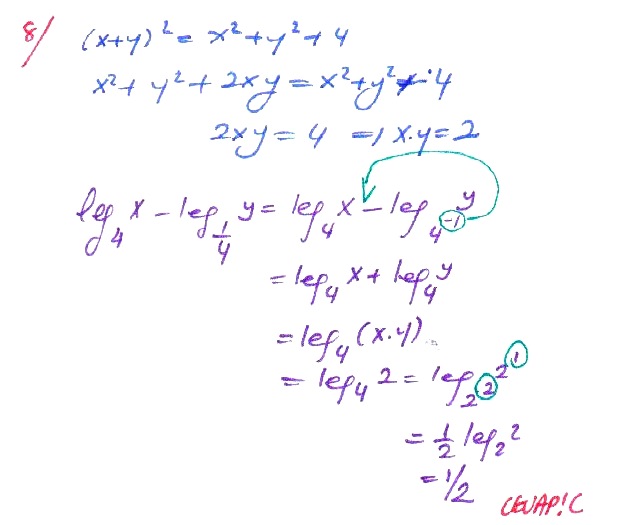 8/ (x+y)² = x²+y²+4
x²+y²+2xy = x²+y²+4
2xy = 4 ⇒ x.y = 2
log₄ x − log_{1/4} y = log₄ x − log_{4⁻¹} y
= log₄ x + log₄ y
= log₄ (x.y)
= log₄ 2 = log_{2²} 2¹
= 1/2 log₂ 2
= 1/2
CEVAP: C